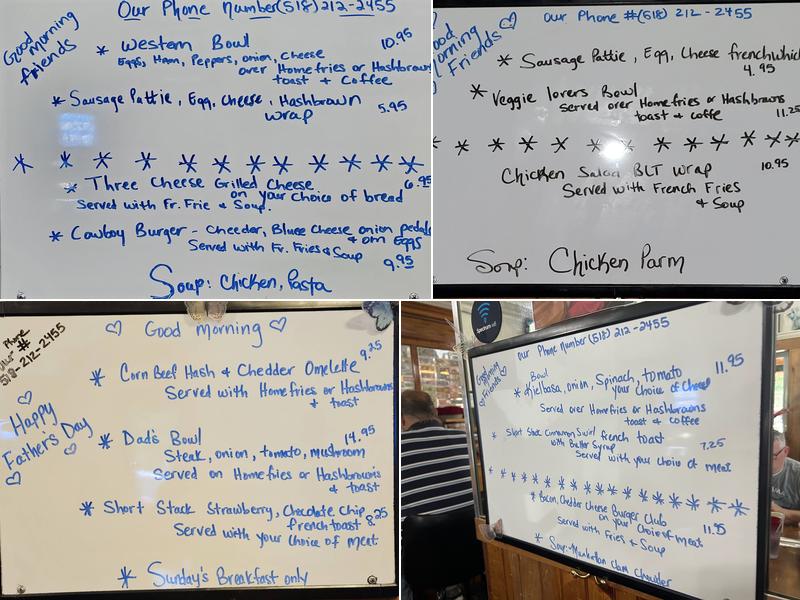 Our Phone Number(518) 212-2455
Good
morning
friends
* Western Bowl 10.95
Eggs, Ham, Peppers, onion, cheese
over Homefries or Hashbrowns
toast & Coffee
* Sausage Pattie, Egg, Cheese, Hashbrown 5.95
wrap
* * * * * * * * * * * *
* Three Cheese Grilled Cheese 6.95
on your choice of bread
Served with Fr. Frie & Soup.
* Cowboy Burger - Cheeder, Bluee Cheese, onion pedals
& om Eggs
Served with Fr. Fries & Soup
9.95
Soup: Chicken, Pasta
our Phone #(518) 212-2455
Good
morning
Friends
* Sausage Pattie, Egg, Cheese frenchwich
4.95
* Veggie lovers Bowl
Served over Homefries or Hashbrowns
toast & coffe 11.25
* * * * * * * * * * * *
Chicken Salad BLT wrap 10.95
Served with French Fries
& Soup
Soup: Chicken Parm
Phone
our #
518-212-2455
Good morning
* Corn Beef Hash & Chedder Omelette 9.25
Served with Homefries or Hashbrowns
& toast
Happy
Father's Day
* Dad's Bowl 14.95
Steak, onion, tomato, mushroom
Served on Homefries or Hashbrowns
& toast
* Short Stack Strawberry, Chocolate Chip
french toast 8.25
Served with your choice of meat
* Sunday's Breakfast only
Spectrum
our Phone Number (518) 212-2455
Good
morning
Friends
Bowl 11.95
* Kielbasa, onion, Spinach, tomato
your choice of cheese
Served over Homefries or Hashbrowns
toast & coffee
* Short Stack Cinnamon Swirl french toast
with Butter Syrup 7.25
Served with your choice of meat
* * * * * * * * * * * * * * * * *
* Bacon, Chedder Cheese Burger Club
on your choice of meat 11.95
Served with Fries & Soup
* Soup: Manhattan Clam Chowder